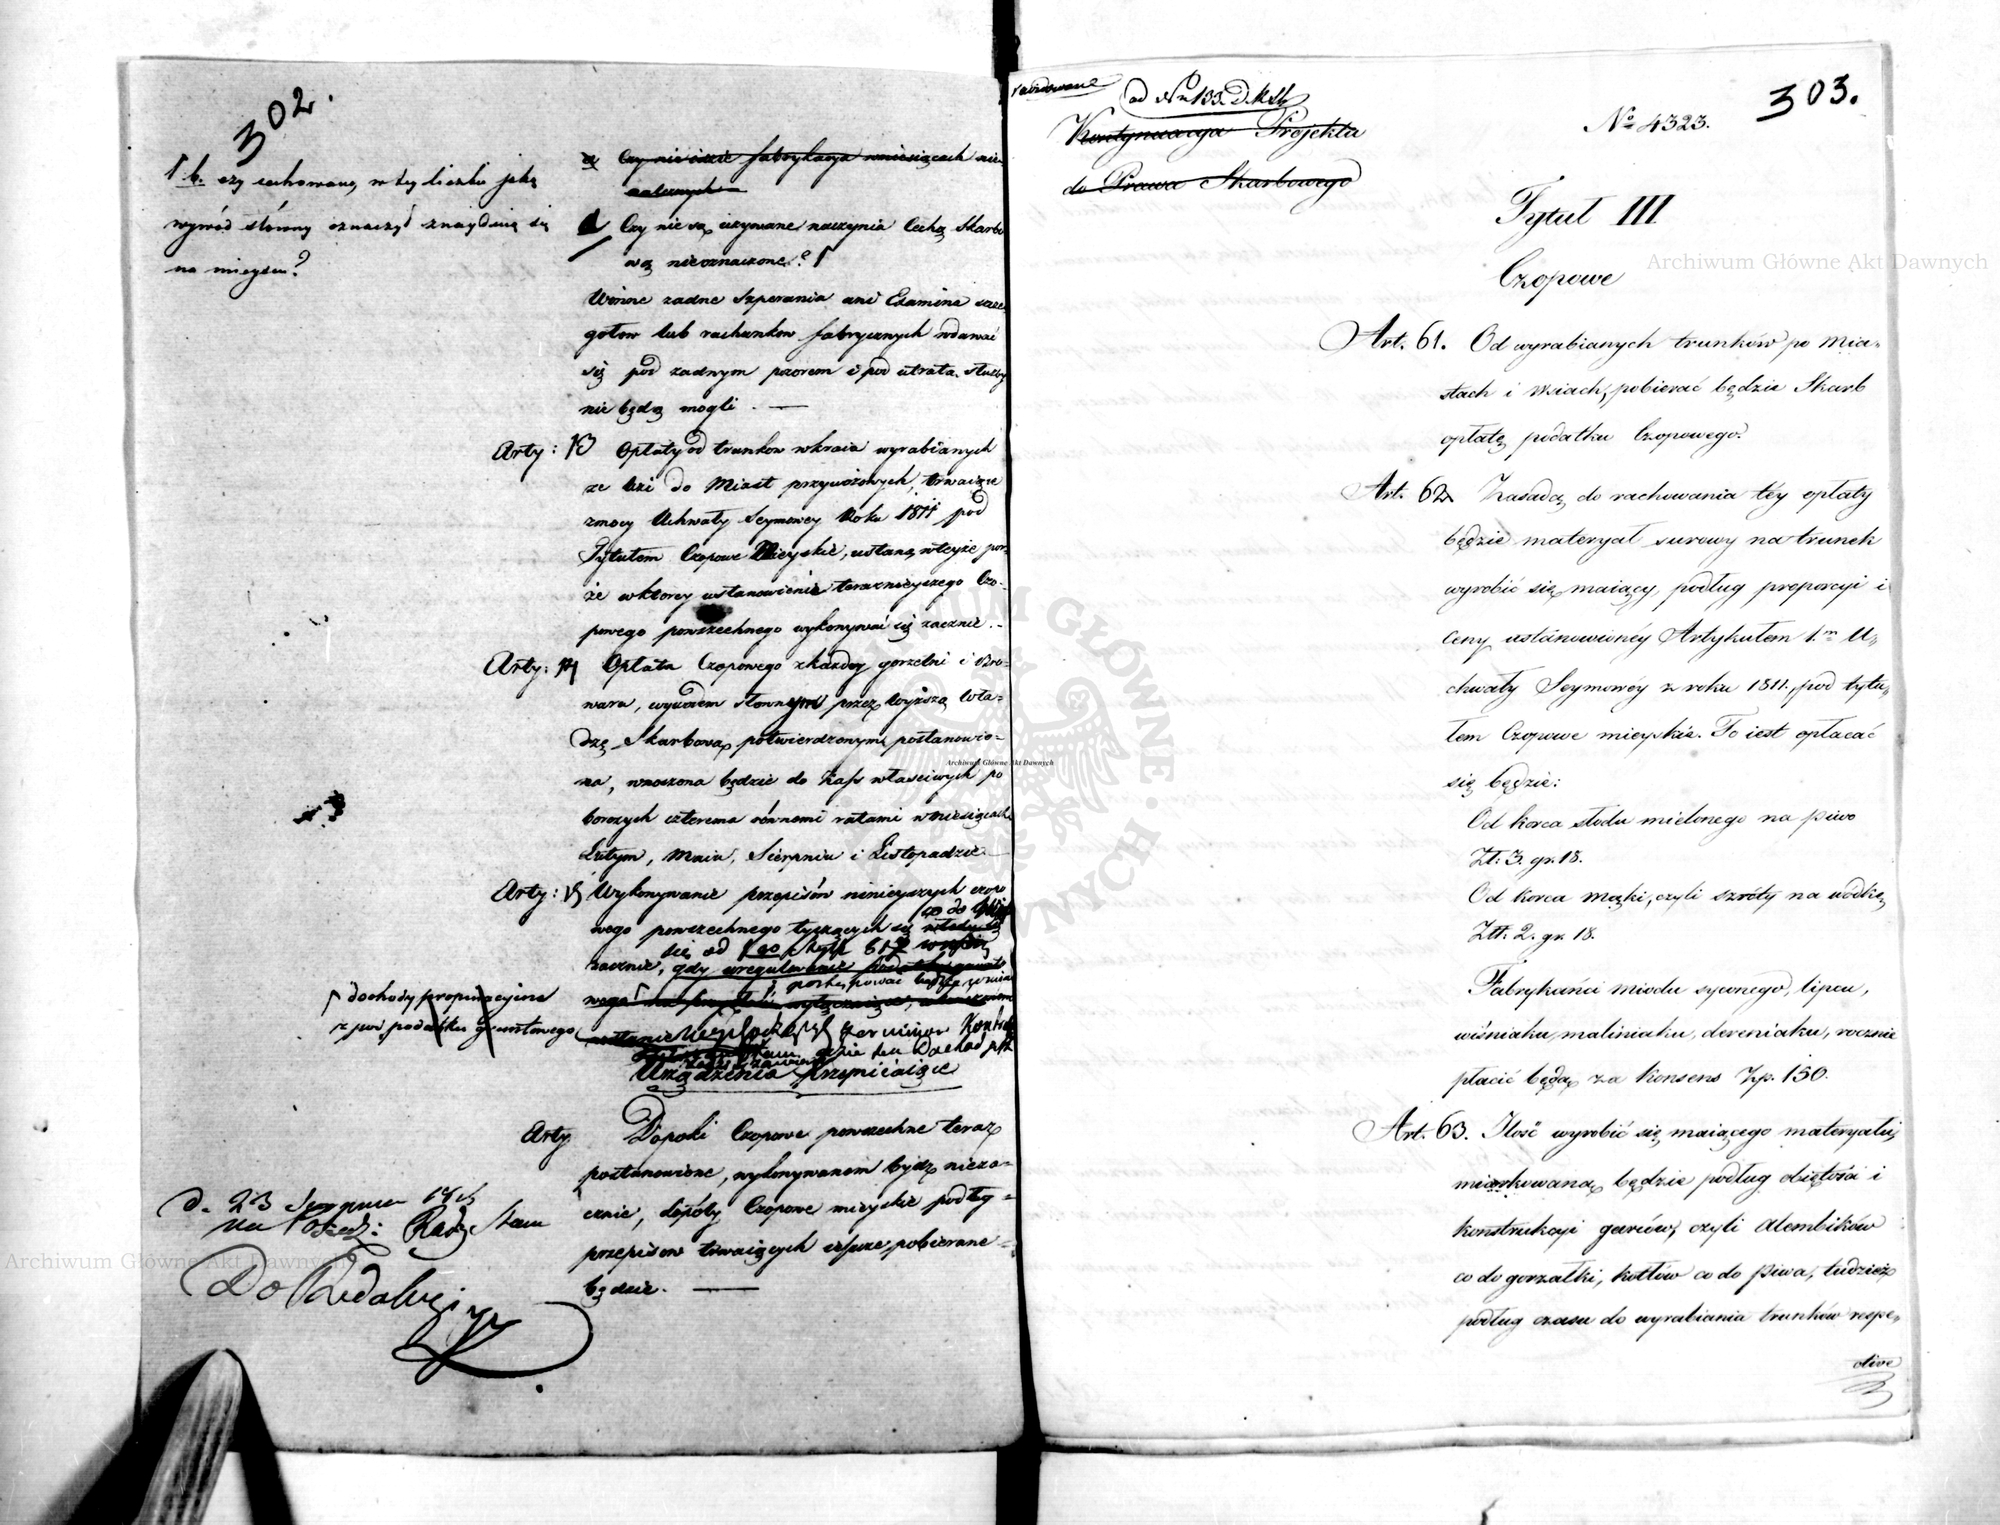 302.
b. czy cechowane, w tey liczbie jaką
wywód słowny oznaczył znayduią się
na mieyscu?
a Czy nie idzie fabrykacya w miesiącach nie-
d Czy nie są używane naczynia Cechą Skarbo
wą nieoznaczone?
Winne żadne Szperania ani Examina szcze-
gołow lub rachunkow fabrycznych wdawać
się pod żadnym pozorem i pod utratą służby
nie będą mogli. —
Arty: 13 Opłaty od trunkow w kraiu wyrabianych
ze wsi do Miast przywożonych, trwaiące
z mocy Uchwały Seymowey Roku 1811 pod
Tytułem Czopowe Mieyskie, ustaną w teyże po-
rze w ktorey ustanowienie teraznieyszego Czo-
powego powszechnego wykonywać się zacznie. –
Arty: 14 Opłata Czopowego z każdey gorzelni i Bro-
waru, wywodem słownym przez wyższą Wła-
dzę Skarbową potwierdzonym postanowio-
na, wnoszona będzie do Kass właściwych po
borczych czterema rownemi ratami w miesiącach
Lutym, Maiu, Sierpniu i Listopadzie. —
Arty: 15 Wykonywanie przepisów ninieyszych czopo
wego powszechnego tyczących się
co do
się od
zacznie, gdy uregulowanie
dochody propinacyine
z pod podatku gruntowego
Urządzenia Przemiiaiące
Arty Dopoki Czopowe powszechne teraz
postanowione, wykonywanem bydź nieza-
cznie, dopóty Czopowe mieyskie podług
przepisow trwaiących ieszcze pobierane
będzie. —
d. 23 Sierpnia
na Posiedz: Rady Stanu
Do Redakcyi
303.
od Nru 133. D.
No 4323.
Kontynuacya Projektu
do Prawa Skarbowego
Tytuł III
Czopowe
Art. 61. Od wyrabianych trunków po Mia-
stach i Wsiach, pobierać będzie Skarb
opłatę podatku Czopowego.
Art. 62 Zasadą do rachowania téy opłaty
będzie materyał surowy na trunek
wyrobić się maiący, podług proporcyi i
Ceny ustanowionéy Artykułem 1.m U-
chwały Seymowéy z roku 1811., pod tytu-
łem Czopowe mieyskie. To iest opłacać
się będzie:
Od korca słodu mielonego na piwo
Zł: 3. gr. 18.
Od korca mąki, czyli szróty na wódkę
Złł: 2. gr. 18.
Fabrykańci miodu syconego, lipcu,
wiśniaku, maliniaku, dereniaku, rocznie
płacić będą za konsens Zp. 150.
Art. 63. Ilość wyrobić się maiącego materyału,
miarkowaną będzie podług obiętości i
konstrukcyi garców, czyli Alembików
co do gorzałki, kotłów co do piwa, tudzież
podług czasu do wyrabiania trunków respe-
ctive
Archiwum Główne Akt Dawnych
Archiwum Główne Akt Dawnych
Archiwum Główne Akt Dawnych